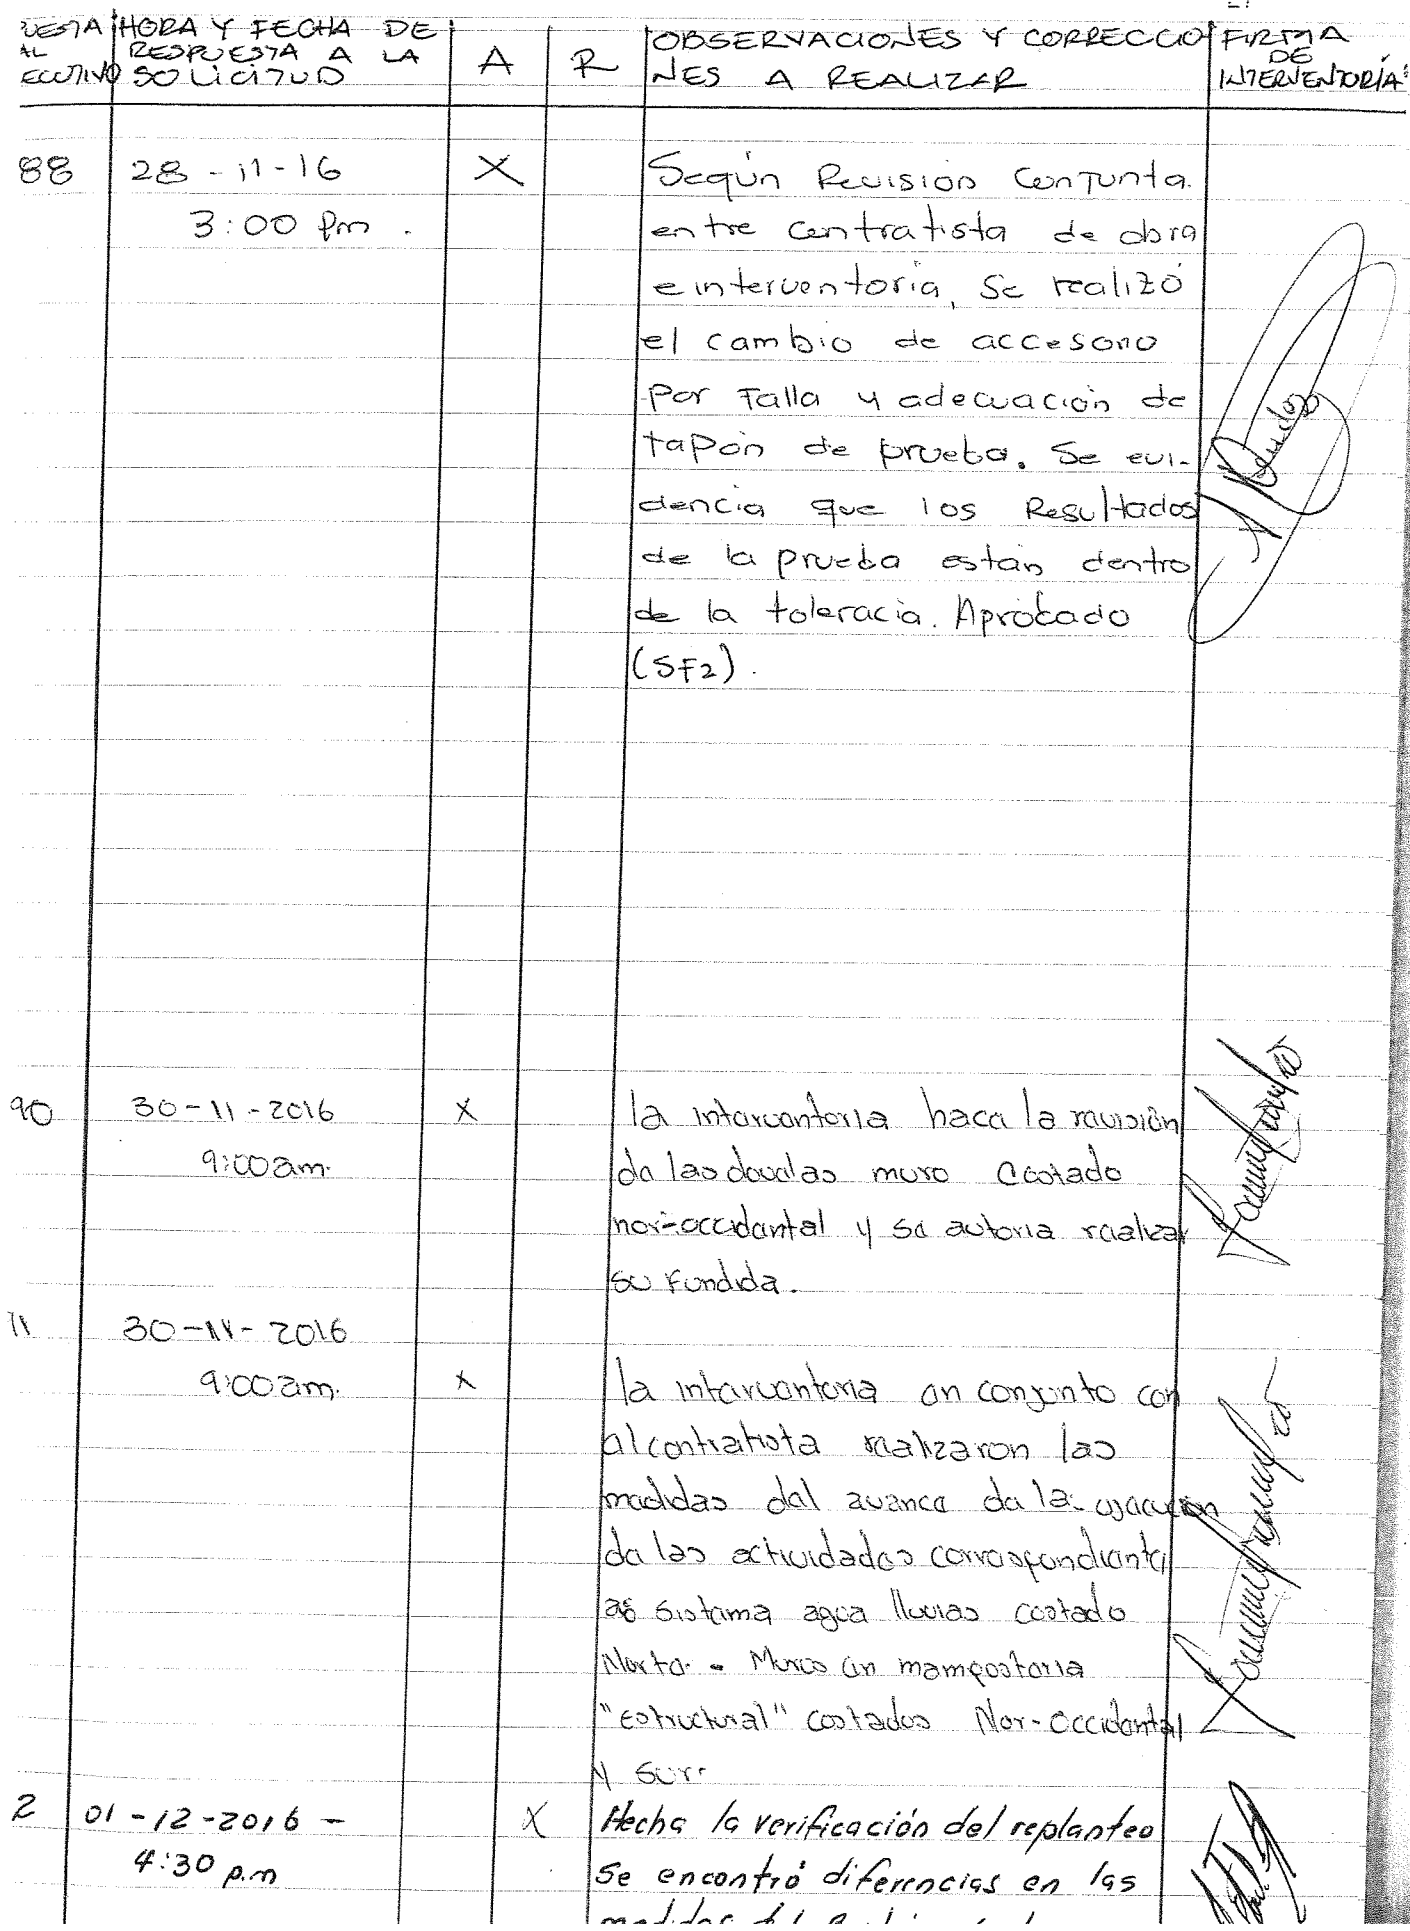 UESTA HORA Y FECHA DE
AL RESPUESTA A LA
ECUTIVO SOLICITUD
A
R
OBSERVACIONES Y CORRECCIO
NES A REALIZAR
FIRMA
DE
INTERVENTORÍA
88 28-11-16 X
3:00 pm.
Según Revisión Conjunta
entre contratista de obra
e interventoria, Se realizó
el cambio de accesorio
Por Falla y adecuación de
tapón de prueba. Se evi-
dencia que los Resultados
de la prueba están dentro
de la toleracia. Aprobado
(SF2).
90 30-11-2016 X
9:00am.
la interventoria hace la revisión
de las dovelas muro Costado
nor-occidental y se autoria realizar
su fundida.
30-11-2016
9:00am. X
la interventoria en conjunto con
el contratista realizaron las
medidas del avance de la ejecución
de las actividades correspondiente
Sistema agua lluvias costado
Norte - Muros en mamposteria
"Estructural" costados Nor-Occidental
y sur.
2 01-12-2016 - X
4:30 p.m
Hecha la verificación del replanteo
se encontró diferencias en las